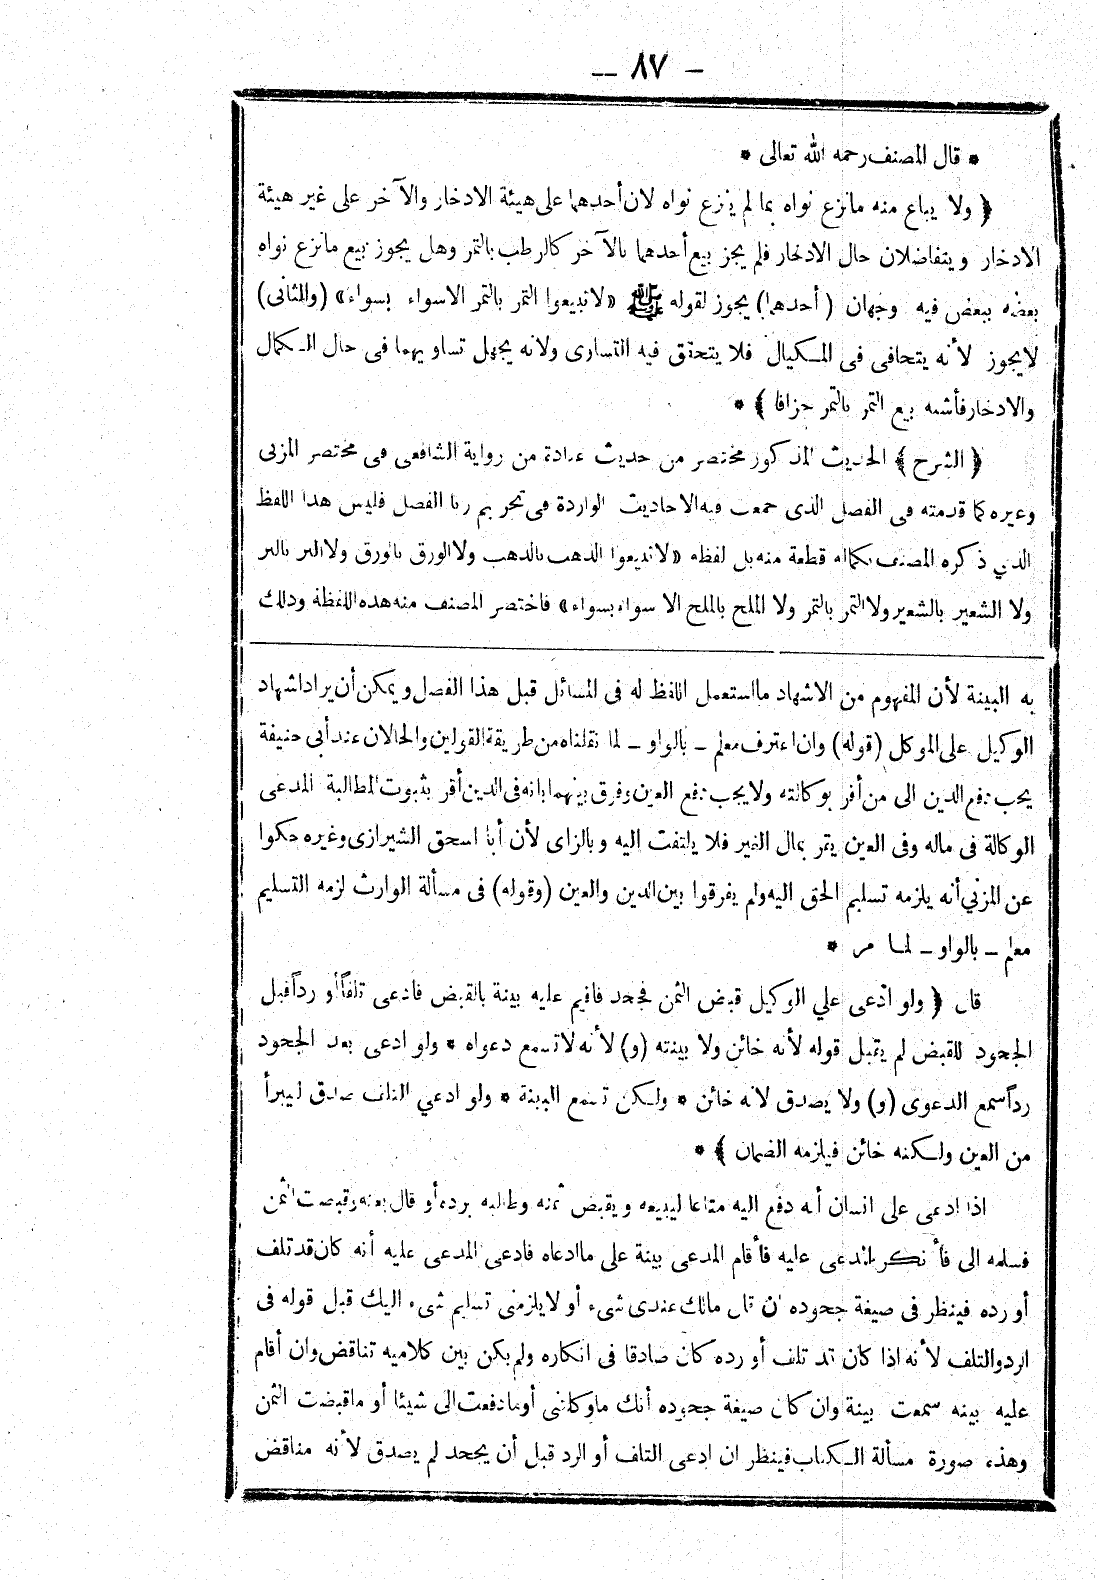 — ٨٧ —
* قال المصنف رحمه الله تعالى *
﴿ ولا يباع منه مانزع نواه بما لم ينزع نواه لان أحدهما على هيئة الادخار والآخر على غير هيئة
الادخار ويتفاضلان حال الادخار فلم يجز بيع أحدهما بالآخر كالرطب بالتمر وهل يجوز بيع مانزع نواه
بعضه ببعض فيه وجهان (أحدهما) يجوز لقوله ﷺ «لاتبيعوا التمر بالتمر الاسواء بسواء» (والثانى)
لايجوز لأنه يتجافى فى المكيال فلا يتحقق فيه التساوى ولانه يجهل تساويهما فى حال الكمال
والادخار فأشبه بيع التمر بالتمر جزافا ﴾ *
﴿ الشرح ﴾ الحديث المذكور مختصر من حديث عبادة من رواية الشافعى فى مختصر المزنى
وغيره كما قدمته فى الفصل الذى جمعت فيه الاحاديث الواردة فى تحريم ربا الفصل فليس هذا اللفظ
الذي ذكره المصنف بكماله قطعة منه بل لفظه «لاتبيعوا الذهب بالذهب ولا الورق بالورق ولا البر بالبر
ولا الشعير بالشعير ولا التمر بالتمر ولا الملح بالملح الا سواء بسواء» فاختصر المصنف منه هذه اللفظة وذلك
به البينة لأن المفهوم من الاشهاد ما استعمل اللفظ له فى المسائل قبل هذا الفصل ويمكن أن يراد اشهاد
الوكيل على الموكل (قوله) وان اعترف معلم - بالواو - لما نقلناه من طريقة القولين والحالان عند أبى حنيفة
يجب دفع الدين الى من أقر بوكالته ولا يجب دفع العين وفرق بينهما بانه فى الدين أقر بثبوت المطالبة لمدعى
الوكالة فى ماله وفى العين يقر بمال الغير فلا يلتفت اليه وبالزاى لأن أبا اسحق الشيرازى وغيره حكوا
عن المزني أنه يلزمه تسليم الحق اليه ولم يفرقوا بين الدين والعين (وقوله) فى مسألة الوارث لزمه التسليم
معلم - بالواو - لما مر *
قال ﴿ ولو ادّعى علي الوكيل قبض الثمن فجحد فاقيم عليه بينة بالقبض فادعى تلفاً أو رداً قبل
الجحود للقبض لم يقبل قوله لأنه خائن ولا بينته (و) لأنه لاتسمع دعواه * ولو ادعى بعد الجحود
رداً سمع الدعوى (و) ولا يصدق لانه خائن * ولكن تسمع البينة * ولو ادعي التلف صدق ليبرأ
من العين ولكنه خائن فيلزمه الضمان ﴾ *
اذا ادعى على انسان أنه دفع اليه متاعا ليبيعه ويقبض ثمنه وطالبه برده أو قال بعته وقبضت الثمن
فسلمه الى فأنكر المدعى عليه فأقام المدعى بينة على ما ادعاه فادعى المدعى عليه أنه كان قد تلف
أو رده فينظر فى صيغة جحوده ان قال مالك عندى شىء أو لا يلزمنى تسليم شىء اليك قبل قوله فى
الرد والتلف لأنه اذا كان قد تلف أو رده كان صادقا فى انكاره ولم يكن بين كلاميه تناقض وان أقام
عليه بينة سمعت بينة وان كان صيغة جحوده أنك ما وكلتنى أو ما دفعت الى شيئا أو ما قبضت الثمن
وهذه صورة مسألة الكتاب فينظر ان ادعى التلف أو الرد قبل أن يجحد لم يصدق لأنه مناقض